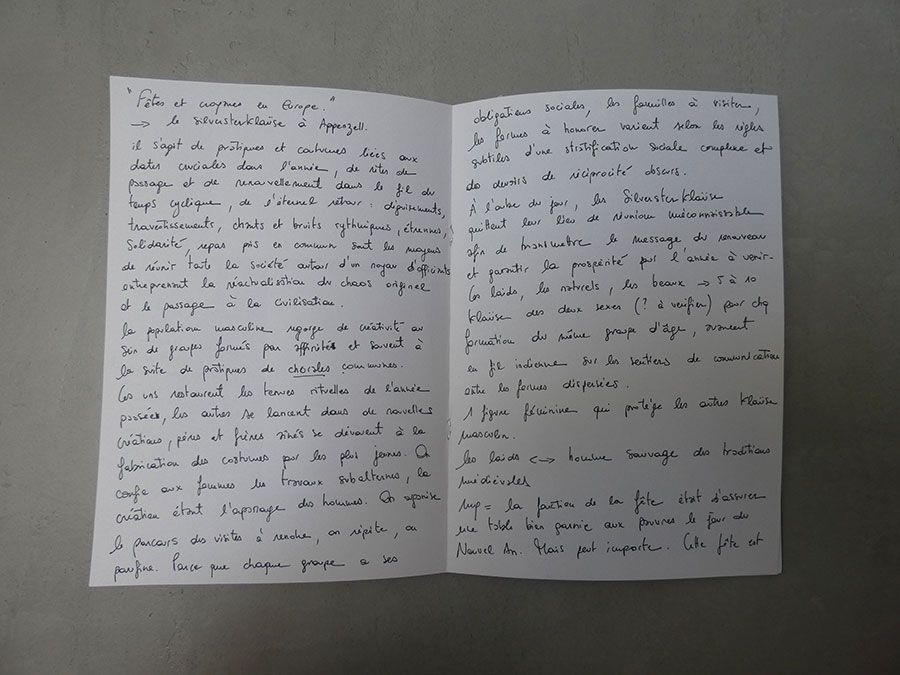 "Fêtes et croyances en Europe."
→ le silversterkläuse à Appenzell.
il s'agit de pratiques et coutumes liées aux
dates cruciales dans l'année, de rites de
passage et de renouvellement dans le fil du
temps cyclique, de l'éternel retour : déguisements,
travestissements, chants et bruits rythmiques, étrennes,
Solidarité, repas pris en commun sont les moyens
de réunir toute la société autour d'un noyau d'officiants
entreprenant la réactualisation du chaos originel
et le passage à la civilisation.
la population masculine regorge de créativité au
sein de groupes formés par affinités et souvent à
la suite de pratiques de chorales communes.
Les uns restaurent les tenues rituelles de l'année
passée, les autres se lancent dans de nouvelles
créations, pères et frères aînés se dévouent à la
fabrication des costumes par les plus jeunes. On
confie aux femmes les travaux subalternes, la
création étant l'apanage des hommes. On organise
le parcours des visites à rendre, on répète, on
paufine. Parce que chaque groupe a ses
obligations sociales, les familles à visiter,
les fermes à honorer varient selon les règles
subtiles d'une stratification sociale complexe et
de devoirs de réciprocité obscurs.
À l'aube du jour, les Silversterkläuse
quittent leur lieu de réunion méconnaissable
afin de transmettre le message du renouveau
et garantir la prospérité pour l'année à venir.
Les laids, les naturels, les beaux → 5 à 10
kläuse des deux sexes (? à vérifier) pour chq
formation du même groupe d'âge, avancent
en fil indienne sur les sentiers de communication
entre les fermes dispersées.
1 figure féminine qui protège les autres kläuse
masculin.
les laids <-> homme sauvage des traditions
médiévales
= la fonction de la fête était d'assurer
une table bien garnie aux pauvres le jour du
Nouvel An. Mais peut importe. Cette fête est